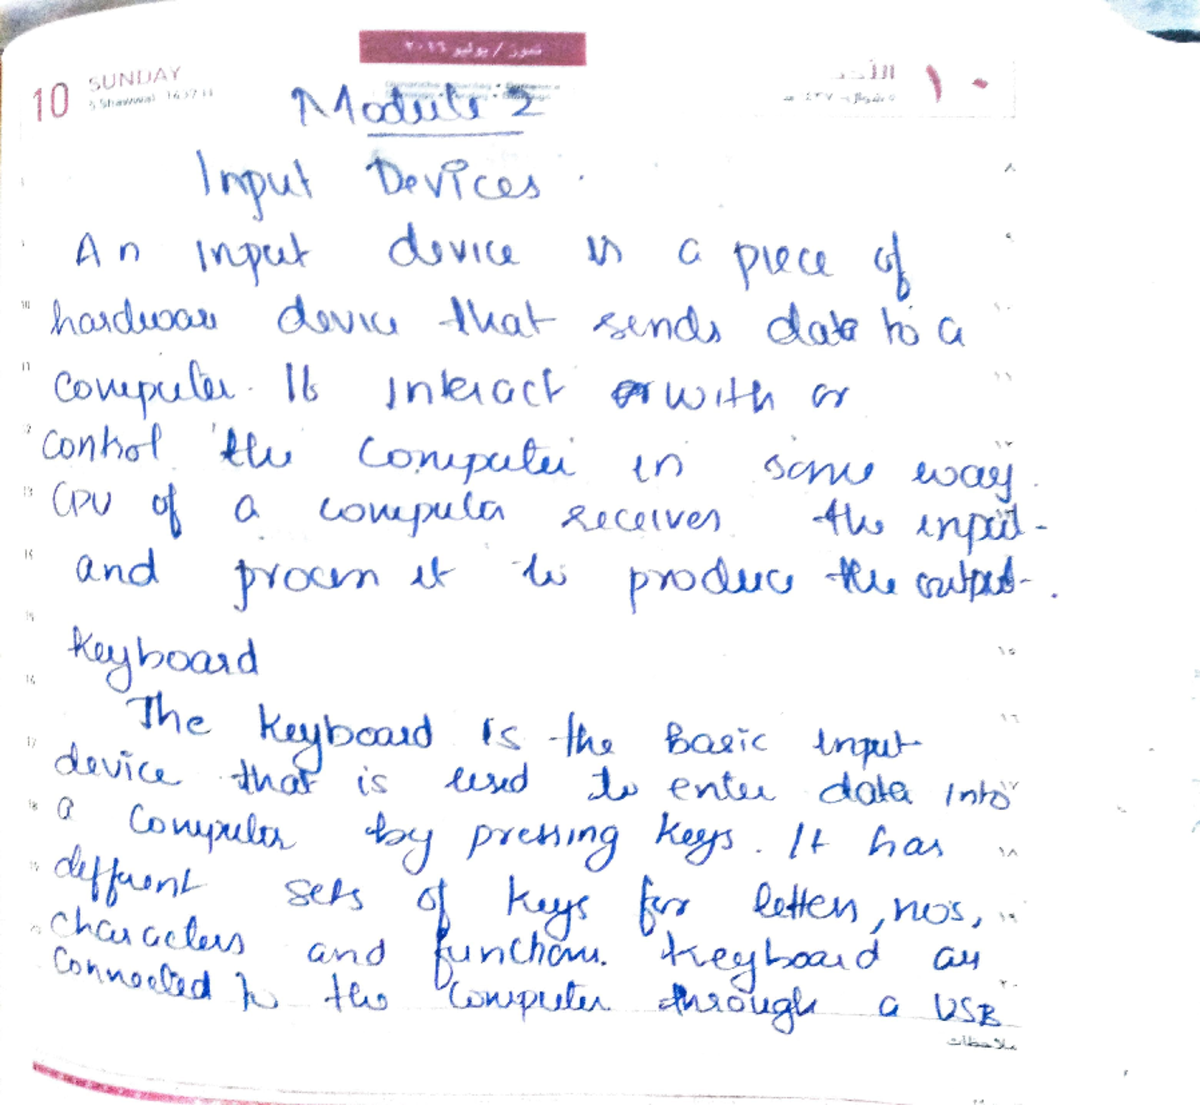 تموز / يوليو ٢٠١٦
10 SUNDAY
5 Shawwal 1437 H
الأحد ١٠
٥ شوال ١٤٣٧ هـ
Module 2
Input Devices.
An input device is a piece of
hardware device that sends data to a
computer. It interact with or
control the computer in some way.
CPU of a computer receives the input
and process it to produce the output.
Keyboard
The keyboard is the Basic input
device that is used to enter data into
a computer by pressing keys. It has
different sets of keys for letters, no's,
characters and functions. Keyboard are
connected to the computer through a USB
ملاحظات